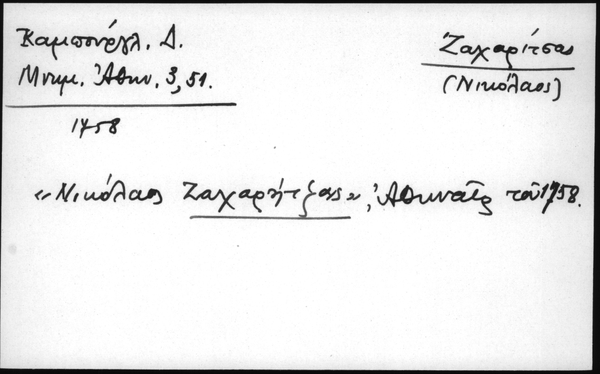 Καμπούρογλ. Δ.
Μνημ. Ἀθην. 3, 51.
1758
Ζαχαρίτσας
(Νικόλαος)
«Νικόλαος Ζαχαρήτζας», Ἀθηναῖος τοῦ 1758.